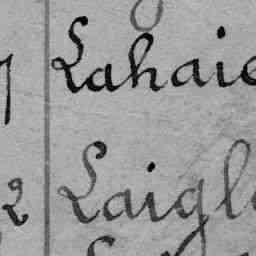 7 Lahaie
2 Laigl